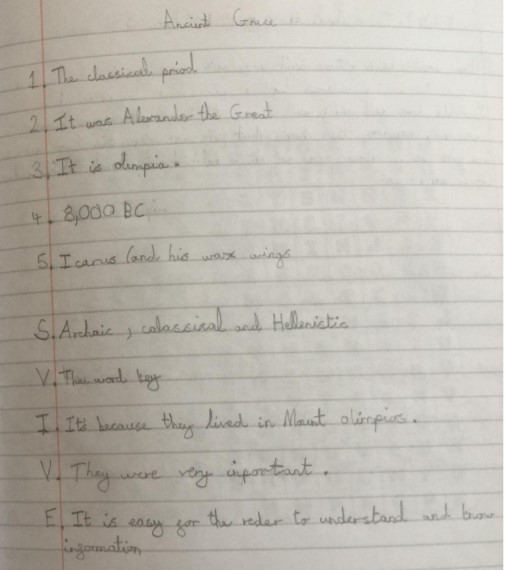 Ancient Grece
1. The classical priod
2. It was Alexander the Great
3. It is olimpia.
4. 8,000 BC
5. Icarus (and his wax wings
S. Archaic, calassical and Hellenistic
V. The word key
I. It's because they lived in Mount olimpius.
V. They were very inportant.
E. It is easy for the reder to understand and know
information